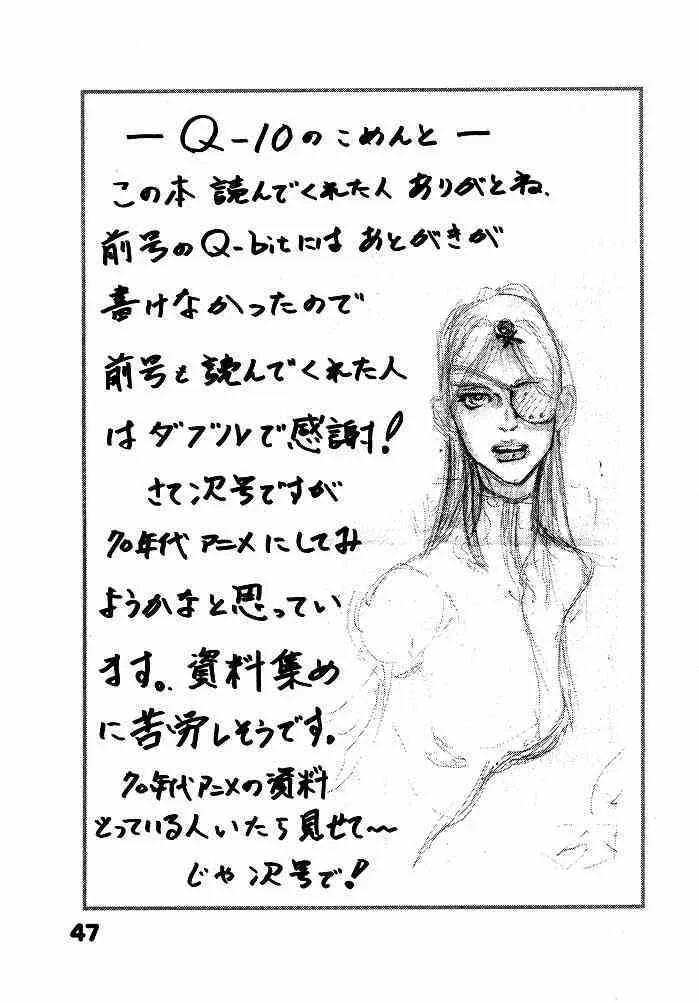 — Q-10のこめんと —
この本 読んでくれた人 ありがとね、
前号のQ-bitには あとがきが
書けなかったので
前号も読んでくれた人
はダブルで感謝!
さて次号ですが
70年代アニメにしてみ
ようかなと思ってい
ます。資料集め
に苦労しそうです。
70年代アニメの資料
とっている人いたら見せて〜
じゃ次号で!
47